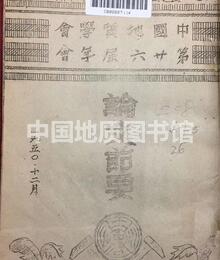 中國地質學會
第廿六屆年會
論文節要
一九五〇·十二月
26
中国地质图书馆